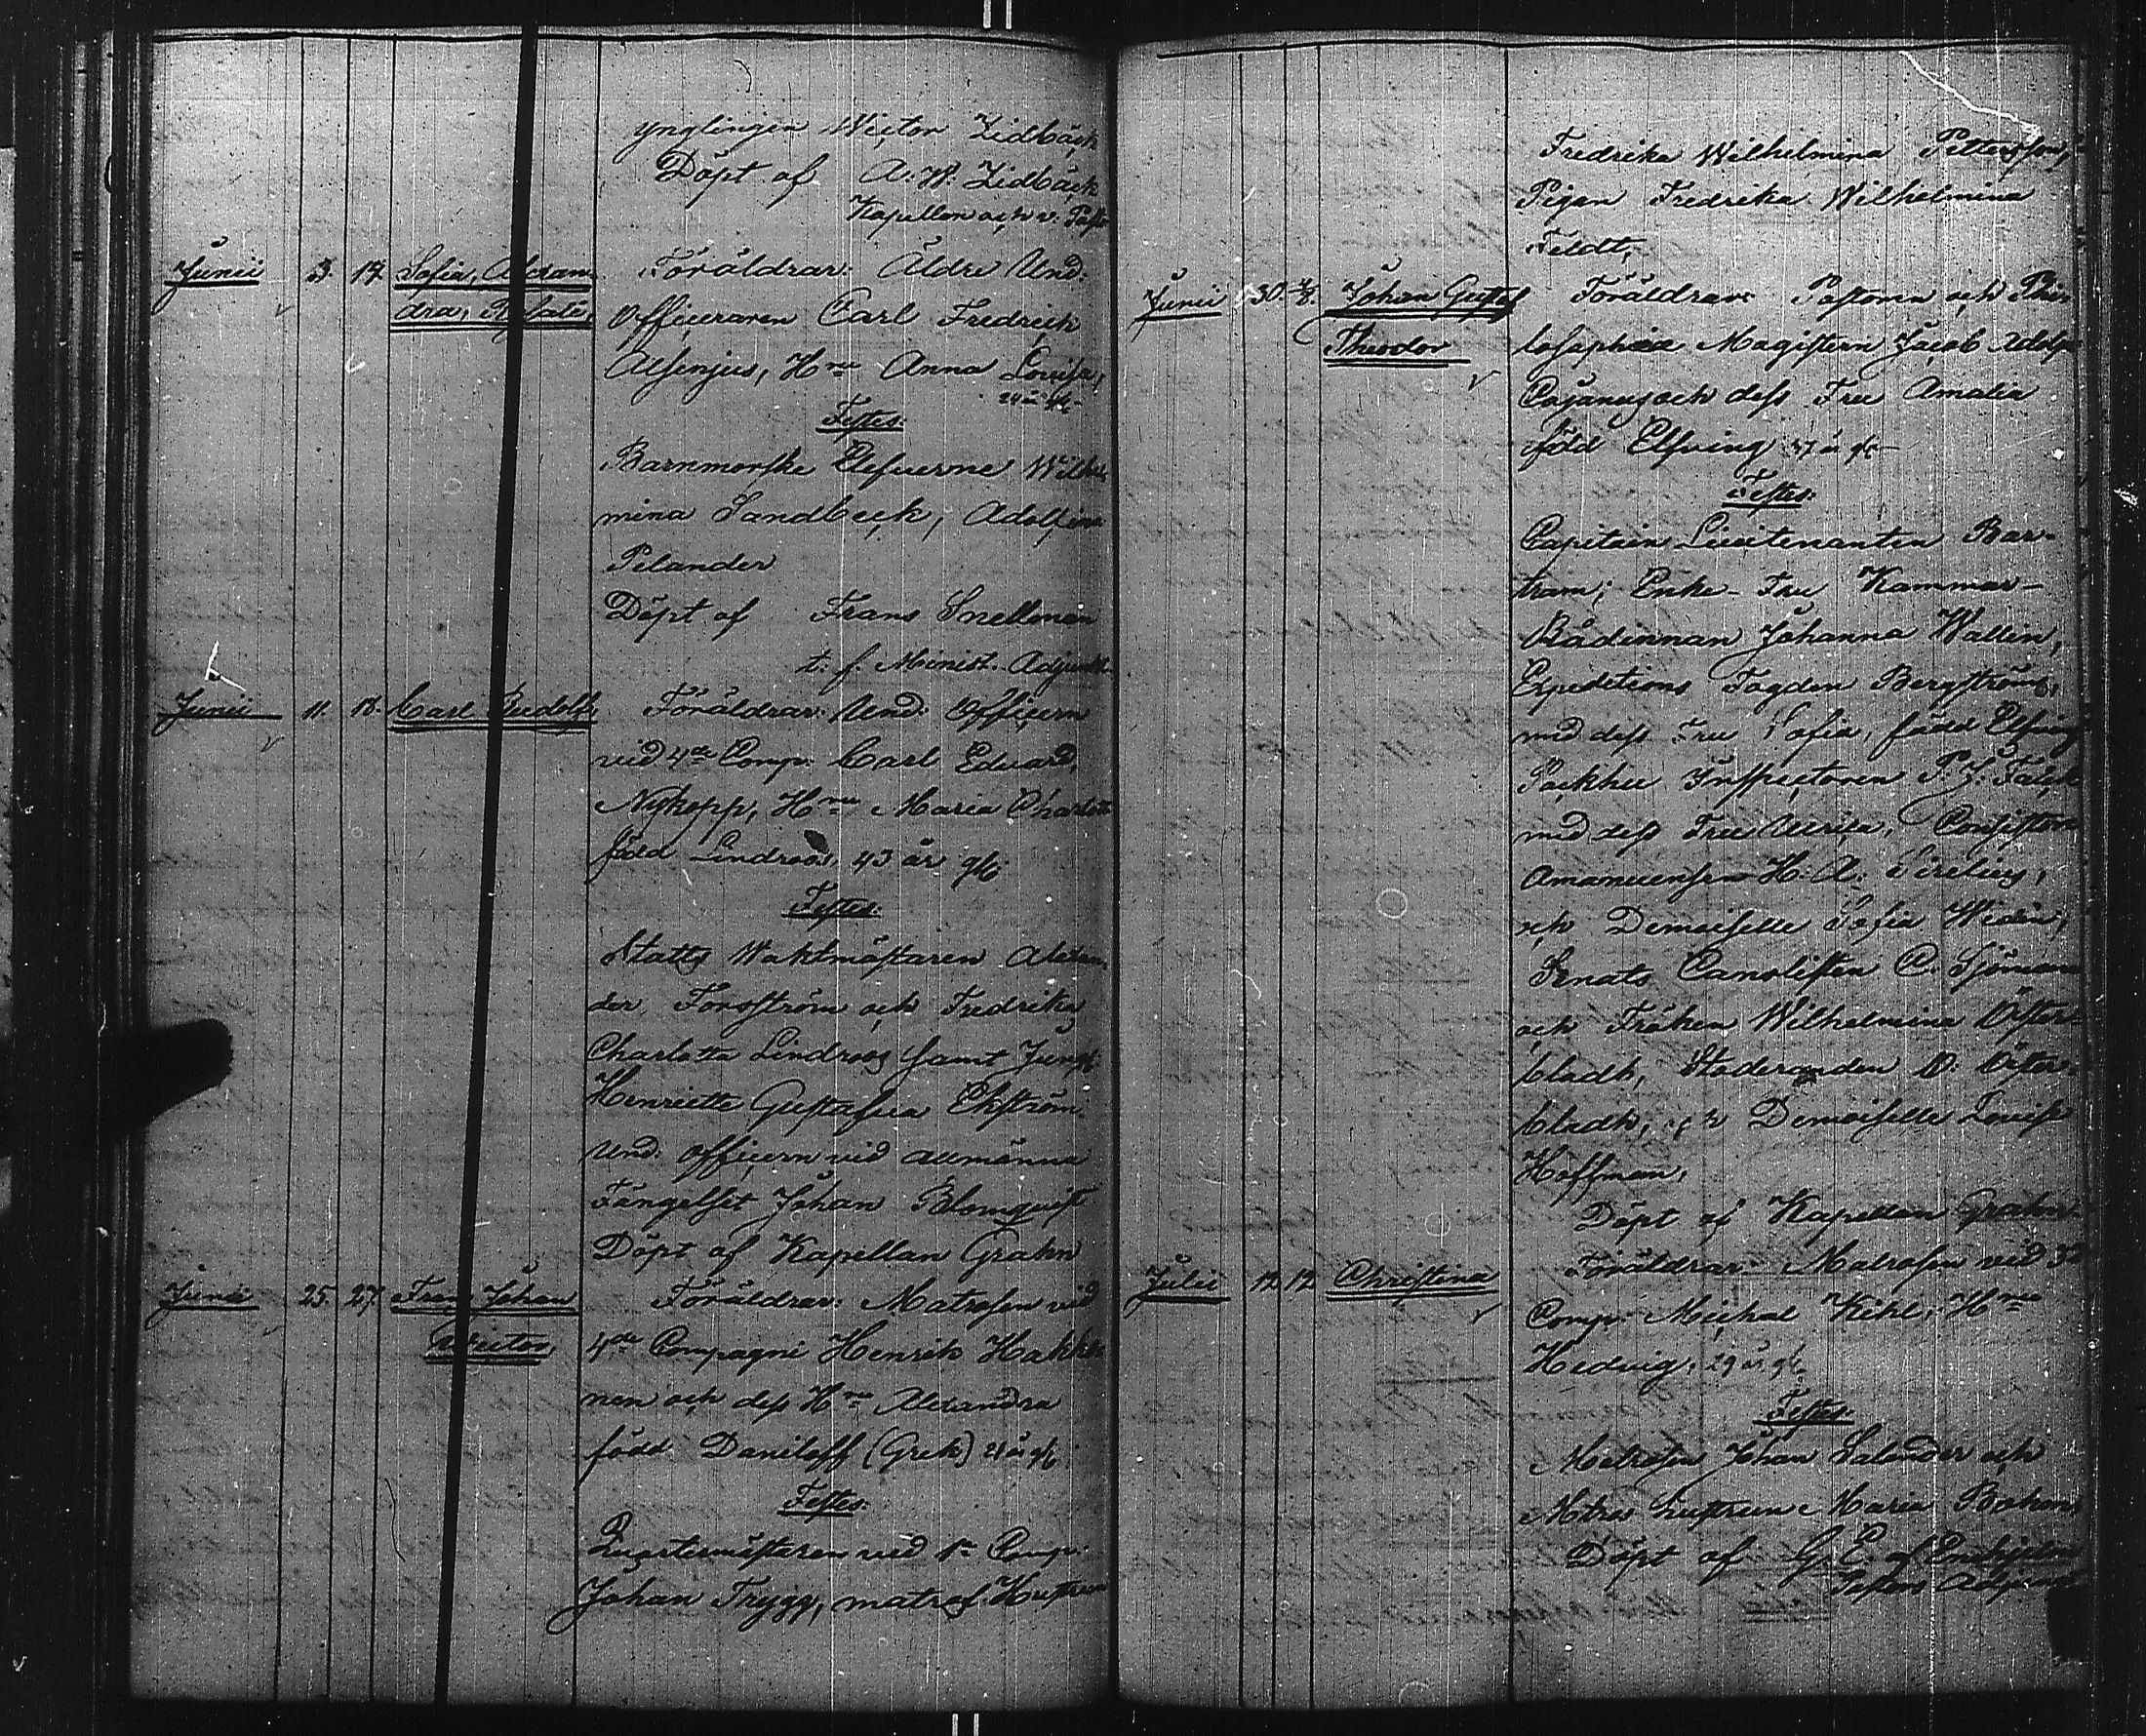 ynglingen Wictor Lidbäck
Döpt af A. W. Lidbäck
Kapellan och v. Past.
Junii 3. 17. Sofia, Alexan-
dra,
Föräldrar: Äldre Und:
Officeraren Carl Fredrick
Alfenjus, Hru Anna Lovisa,
24 år gl.
Testes:
Barnmorske Elefverne Wilhel-
mina Sandbeck, Adolfina
Pelander
Döpt af Frans Snellman
t. f. Minist. Adjunkt.
Junii 11. 18. Carl Rudolf,
Föräldrar: Und: Officern
vid 4de Comp: Carl Eduard
Nykopp, Hru Maria Charlotta
född Lindroos, 43 år gl.
Testes:
Statts Waktmästaren Alexan-
der Forsström och Fredrika
Charlotta Lindroos samt Jungf.
Henriette Gustafva Ekström.
Und: officern vid allmänna
Fängelset Johan Blomquist
Döpt af Kapellan Grahn
Junii 25. 27. Frans Johan
Victor,
Föräldrar: Matrosen vid
4de Compagni Henrik Hakki-
nen och dess Hru Alexandra
född Daniloff (Grek) 21 år gl.
Testes:
Quartermästaren vid 1a Comp:
Johan Trygg, matros Hustrun
Fredrika Wilhelmina Pettersson,
Pigan Fredrika Wilhelmina
Feldt,
Junii 30. 7/8. Johan Gustaf
Theodor
Föräldrar: Pastoren och Phi-
losophiae Magistern Jacob Adolf
Cajanus och dess Fru Amalia
född Elfving 37 år gl.
Testes:
Capitain Lieutenanten Bar-
tram; Enke-Fru Kammar-
Rådinnan Johanna Wallin,
Expeditions Fogden Bergström,
med dess Fru Sofia, född Elfving
Packhu Inspectoren P. J. Falck
med dess Fru Ulrica, Consistorii
Amanuensen H. A. Sirelius,
och Demoiselle Sofia Widén,
Senats Canslisten C. Sjöman
och Fröken Wilhelmina Öster-
bladh, Studeranden O: Öster-
bladh, och Demoiselle Lovise
Hoffman,
Döpt af Kapellan Grahn.
Julii 12. 12. Christina
Föräldrar: Matrosen vid 3de
Comp: Michal Kihl, Hru
Hedvig, 29 år gl.
Testes:
Matrosen Johan Salander och
Matros hustrun Maria Boman,
Döpt af G. E. af Enehjelm
Pastors Adjunct